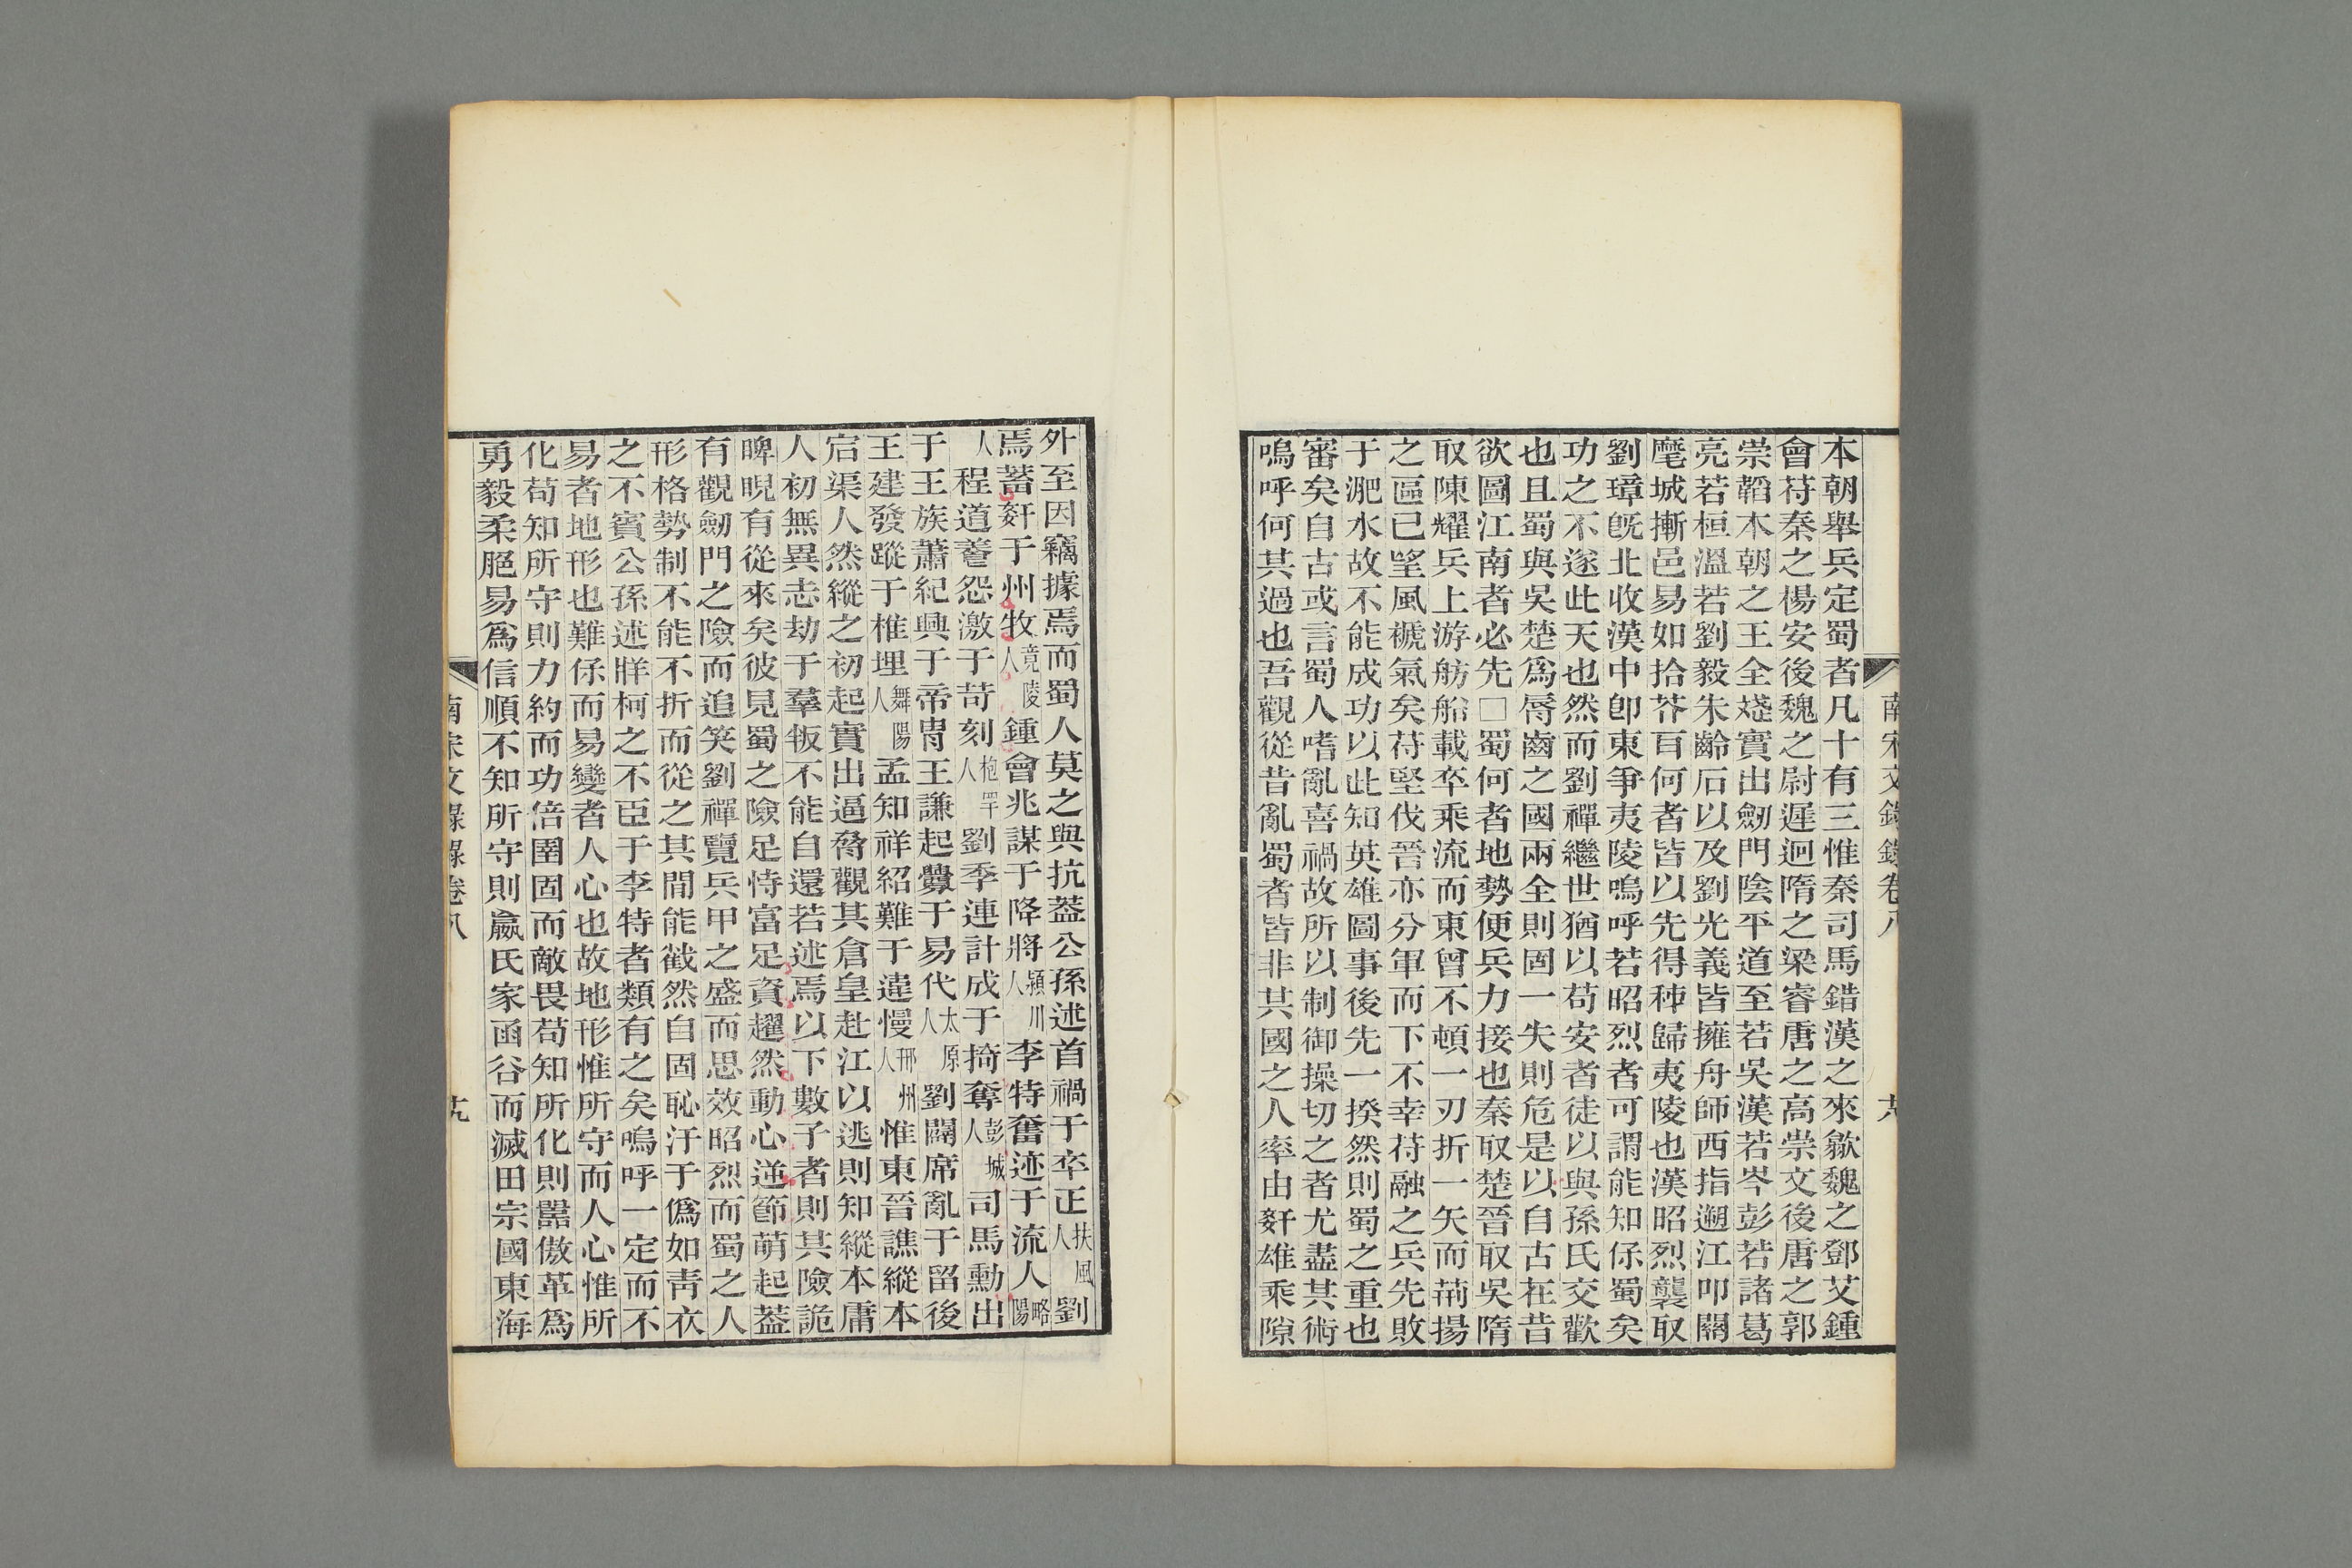 本朝舉兵定蜀者凡十有三惟秦司馬錯漢之來歙魏之鄧艾鍾
會苻秦之楊安後魏之尉遲迥隋之梁睿唐之高崇文後唐之郭
崇韜本朝之王全㻸實出劒門陰平道至若吳漢若岑彭若諸葛
亮若桓溫若劉毅朱齡石以及劉光義皆擁舟師西指遡江叩關
麾城摲邑易如拾芥百何者皆以先得秭歸夷陵也漢昭烈襲取
劉璋旣北收漢中卽東爭夷陵嗚呼若昭烈者可謂能知保蜀矣
功之不遂此天也然而劉禪繼世猶以苟安者徒以與孫氏交歡
也且蜀與吳楚爲脣齒之國兩全則固一失則危是以自古在昔
欲圖江南者必先□蜀何者地勢便兵力接也秦取楚晉取吳隋
取陳耀兵上游舫船載卒乘流而東曾不頓一刃折一矢而荊揚
之區已望風褫氣矣苻堅伐晉亦分軍而下不幸苻融之兵先敗
于淝水故不能成功以此知英雄圖事後先一揆然則蜀之重也
審矣自古或言蜀人嗜亂喜禍故所以制御操切之者尤盡其術
嗚呼何其過也吾觀從昔亂蜀者皆非其國之人率由姧雄乘隙
南宋文錄錄卷八
外至因竊據焉而蜀人莫之與抗蓋公孫述首禍于卒正扶風人劉
焉蓄姧于州牧竟陵人鍾會兆謀于降將潁川人李特奮迹于流人略陽
人程道養怨激于苛刻枹罕人劉季連計成于掎奪彭城人司馬勳出
于王族蕭紀興于帝胄王謙起釁于易代太原人劉闢席亂于留後
王建發蹤于椎埋舞陽人孟知祥紹難于違慢邢州人惟東晉譙縱本
宕渠人然縱之初起實出逼脅觀其倉皇赴江以逃則知縱本庸
人初無異志劫于羣叛不能自還若述焉以下數子者則其險詭
睥睨有從來矣彼見蜀之險足恃富足資趯然動心逆節萌起葢
有觀劒門之險而追笑劉禪覽兵甲之盛而思效昭烈而蜀之人
形格勢制不能不折而從之其間能戳然自固恥汙于僞如靑衣
之不賓公孫述牂柯之不臣于李特者類有之矣嗚呼一定而不
易者地形也難保而易變者人心也故地形惟所守而人心惟所
化苟知所守則力約而功倍圉固而敵畏苟知所化則嚚傲革爲
勇毅柔脃易爲信順不知所守則嬴氏家函谷而滅田宗國東海
南宋文錄錄卷八